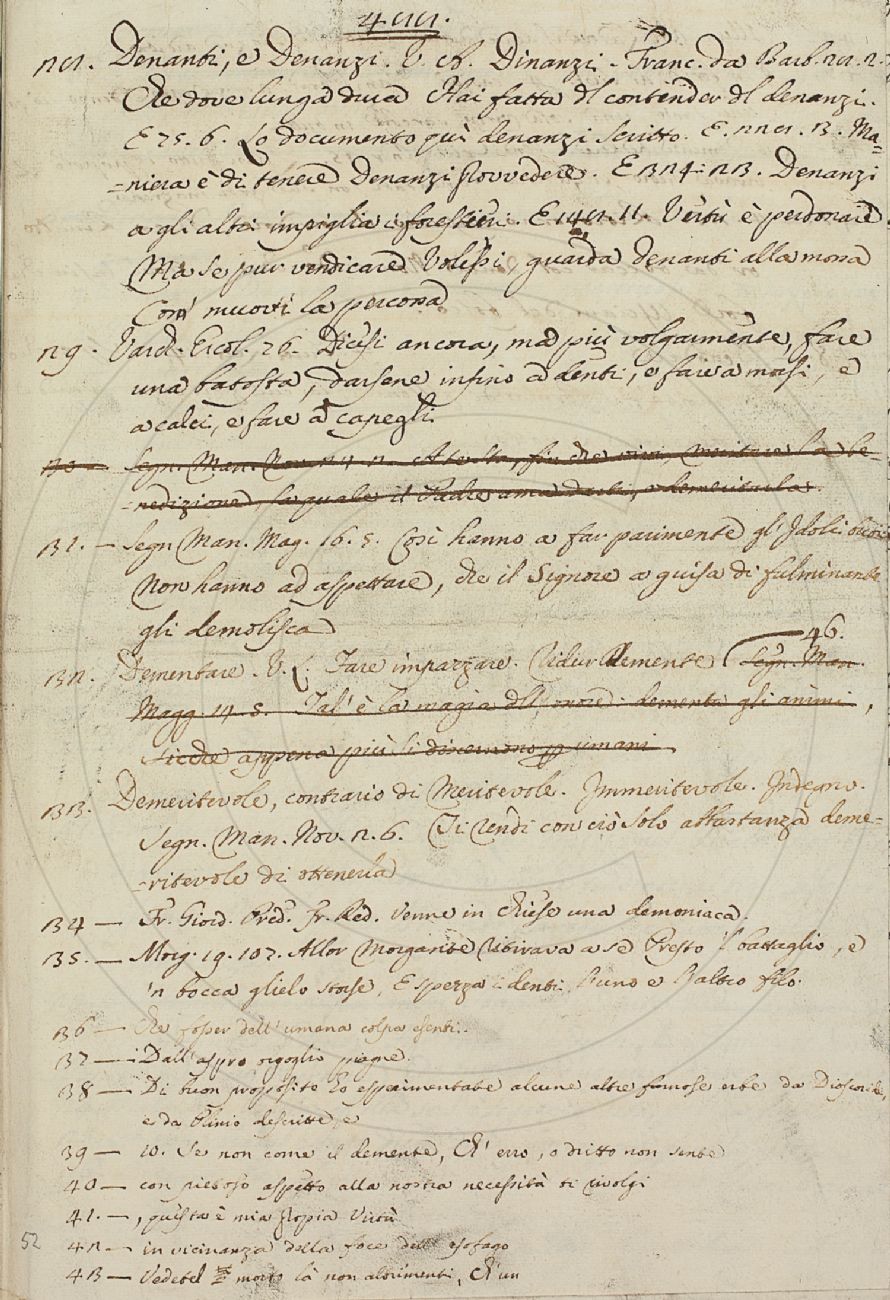 Denanti, e Denanzi. V. Dinanzi. Franc. da Barb.
Che dove lunga dura Hai fatta dl contender dl denanzi.
E 25. 6. Lo documento quì denanzi scritto. E. Ma=
=niera è di tenere Denanzi provvedere. E Denanzi
agli altri impiglia i forestieri. E 11. Vertù è perdonare
Ma se pur vendicare Volessi, guarda denanti alla mossa
Com' muovi la persona
29. Varch. Ercol. 76. Dicesi ancora, ma più volgarmente, fare
una batosta, darsene infino a denti, e fare a morsi, e
a calci, e fare a capegli.
30 — Segn. Man. Nov. fin che vivi, meritare la be-
=nedizione, la quale il Padre ama darti, o demeritarla.
31. — Segn Man. Mag. 16. 5. Così hanno a far parimente gl' Idoli
Non hanno ad aspettare, che il Signore a guisa di fulminante
gli demolisca
46.
32. Dementare. V. L. Fare impazzare. Ridur Demente Segn. Man.
Magg. 14. 5. Tal' è la magia dell' onore: dementa gli animi,
sicchè appena più si discernono umani.
33. Demeritevole, contrario di Meritevole. Immeritevole. Indegno.
Segn. Man. Nov. 2. 6. Ti rendi con ciò solo abbastanza deme=
=ritevole di ottenerla
34 — Fr. Giord. Pred. Fr. Red. Venne in Chiesa una demoniaca.
35. — Morg. 19. 107. Allor Morgante tirava a sè Presto il battaglio, e
'n bocca glielo storse, E spezza i denti, l'uno e l'altro filo.
36 — Che fosser dell' umana colpa esenti.
37 — Dall' aspro orgoglio piagne.
38 — Di buon proposito ho esperimentate alcune altre famose erbe da Dioscoride,
e da Plinio descritte, e
39 — 10. Se non come il demente, Ch' erro, o dritto non sente
40 — con pietoso aspetto alla nostra necessità ti rivolgi
41. —, questa è mia propia Virtù
42 — in vicinanza della foce dell' esofago
43 — Vedetel morto là non altrimenti, Ch' un
52